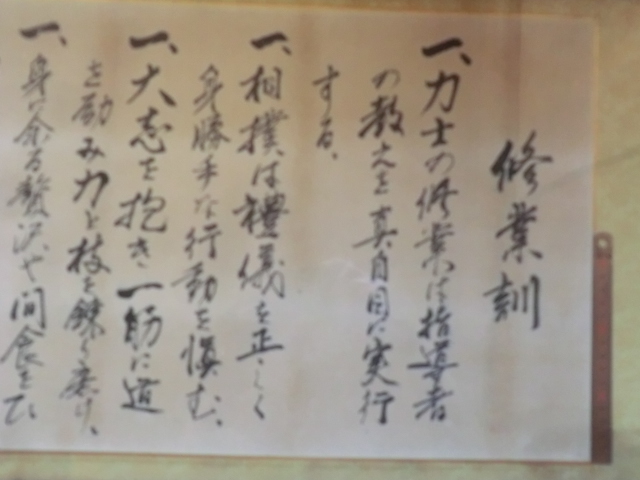 修業訓
一、力士の修業は指導者
の教えを真自目に実行
する、
一、相撲は禮儀を正しく
身勝手な行動を慎む、
一、大志を抱き一筋に道
を励み力と技を錬り磨け、
一、身に余る贅沢や間食をひ